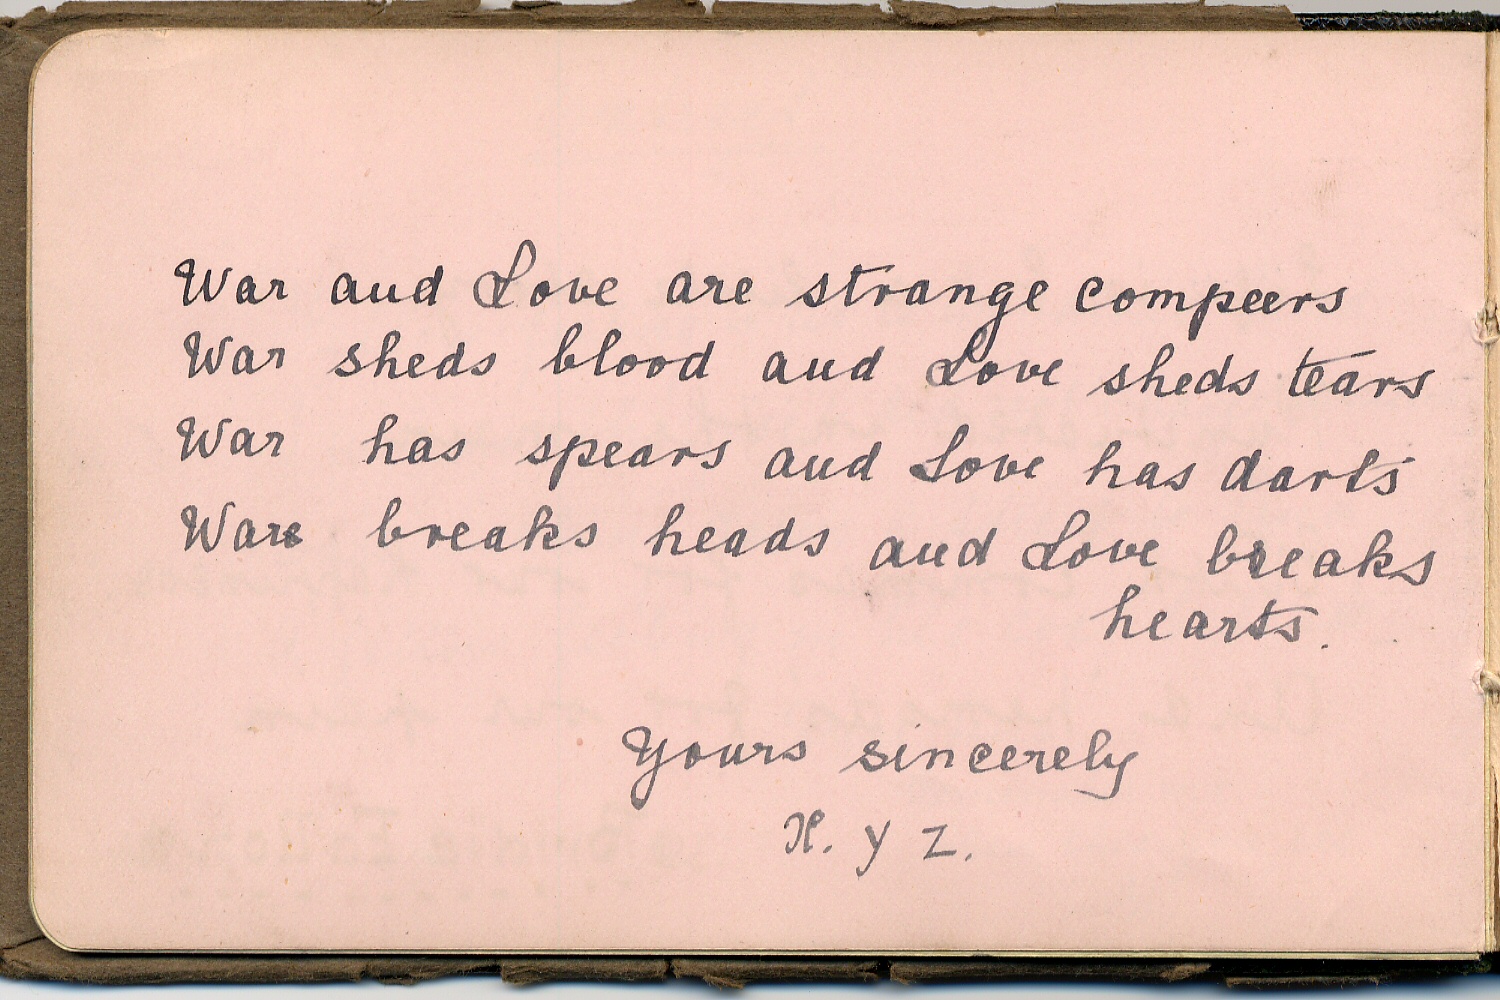 War and Love are strange compeers
War sheds blood and Love sheds tears
War has spears and Love has darts
War breaks heads and Love breaks
hearts.
Yours sincerely
X. Y Z.